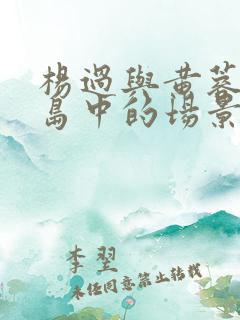 楊過與黃蓉
島中的場景
李翌
未经同意禁止转载